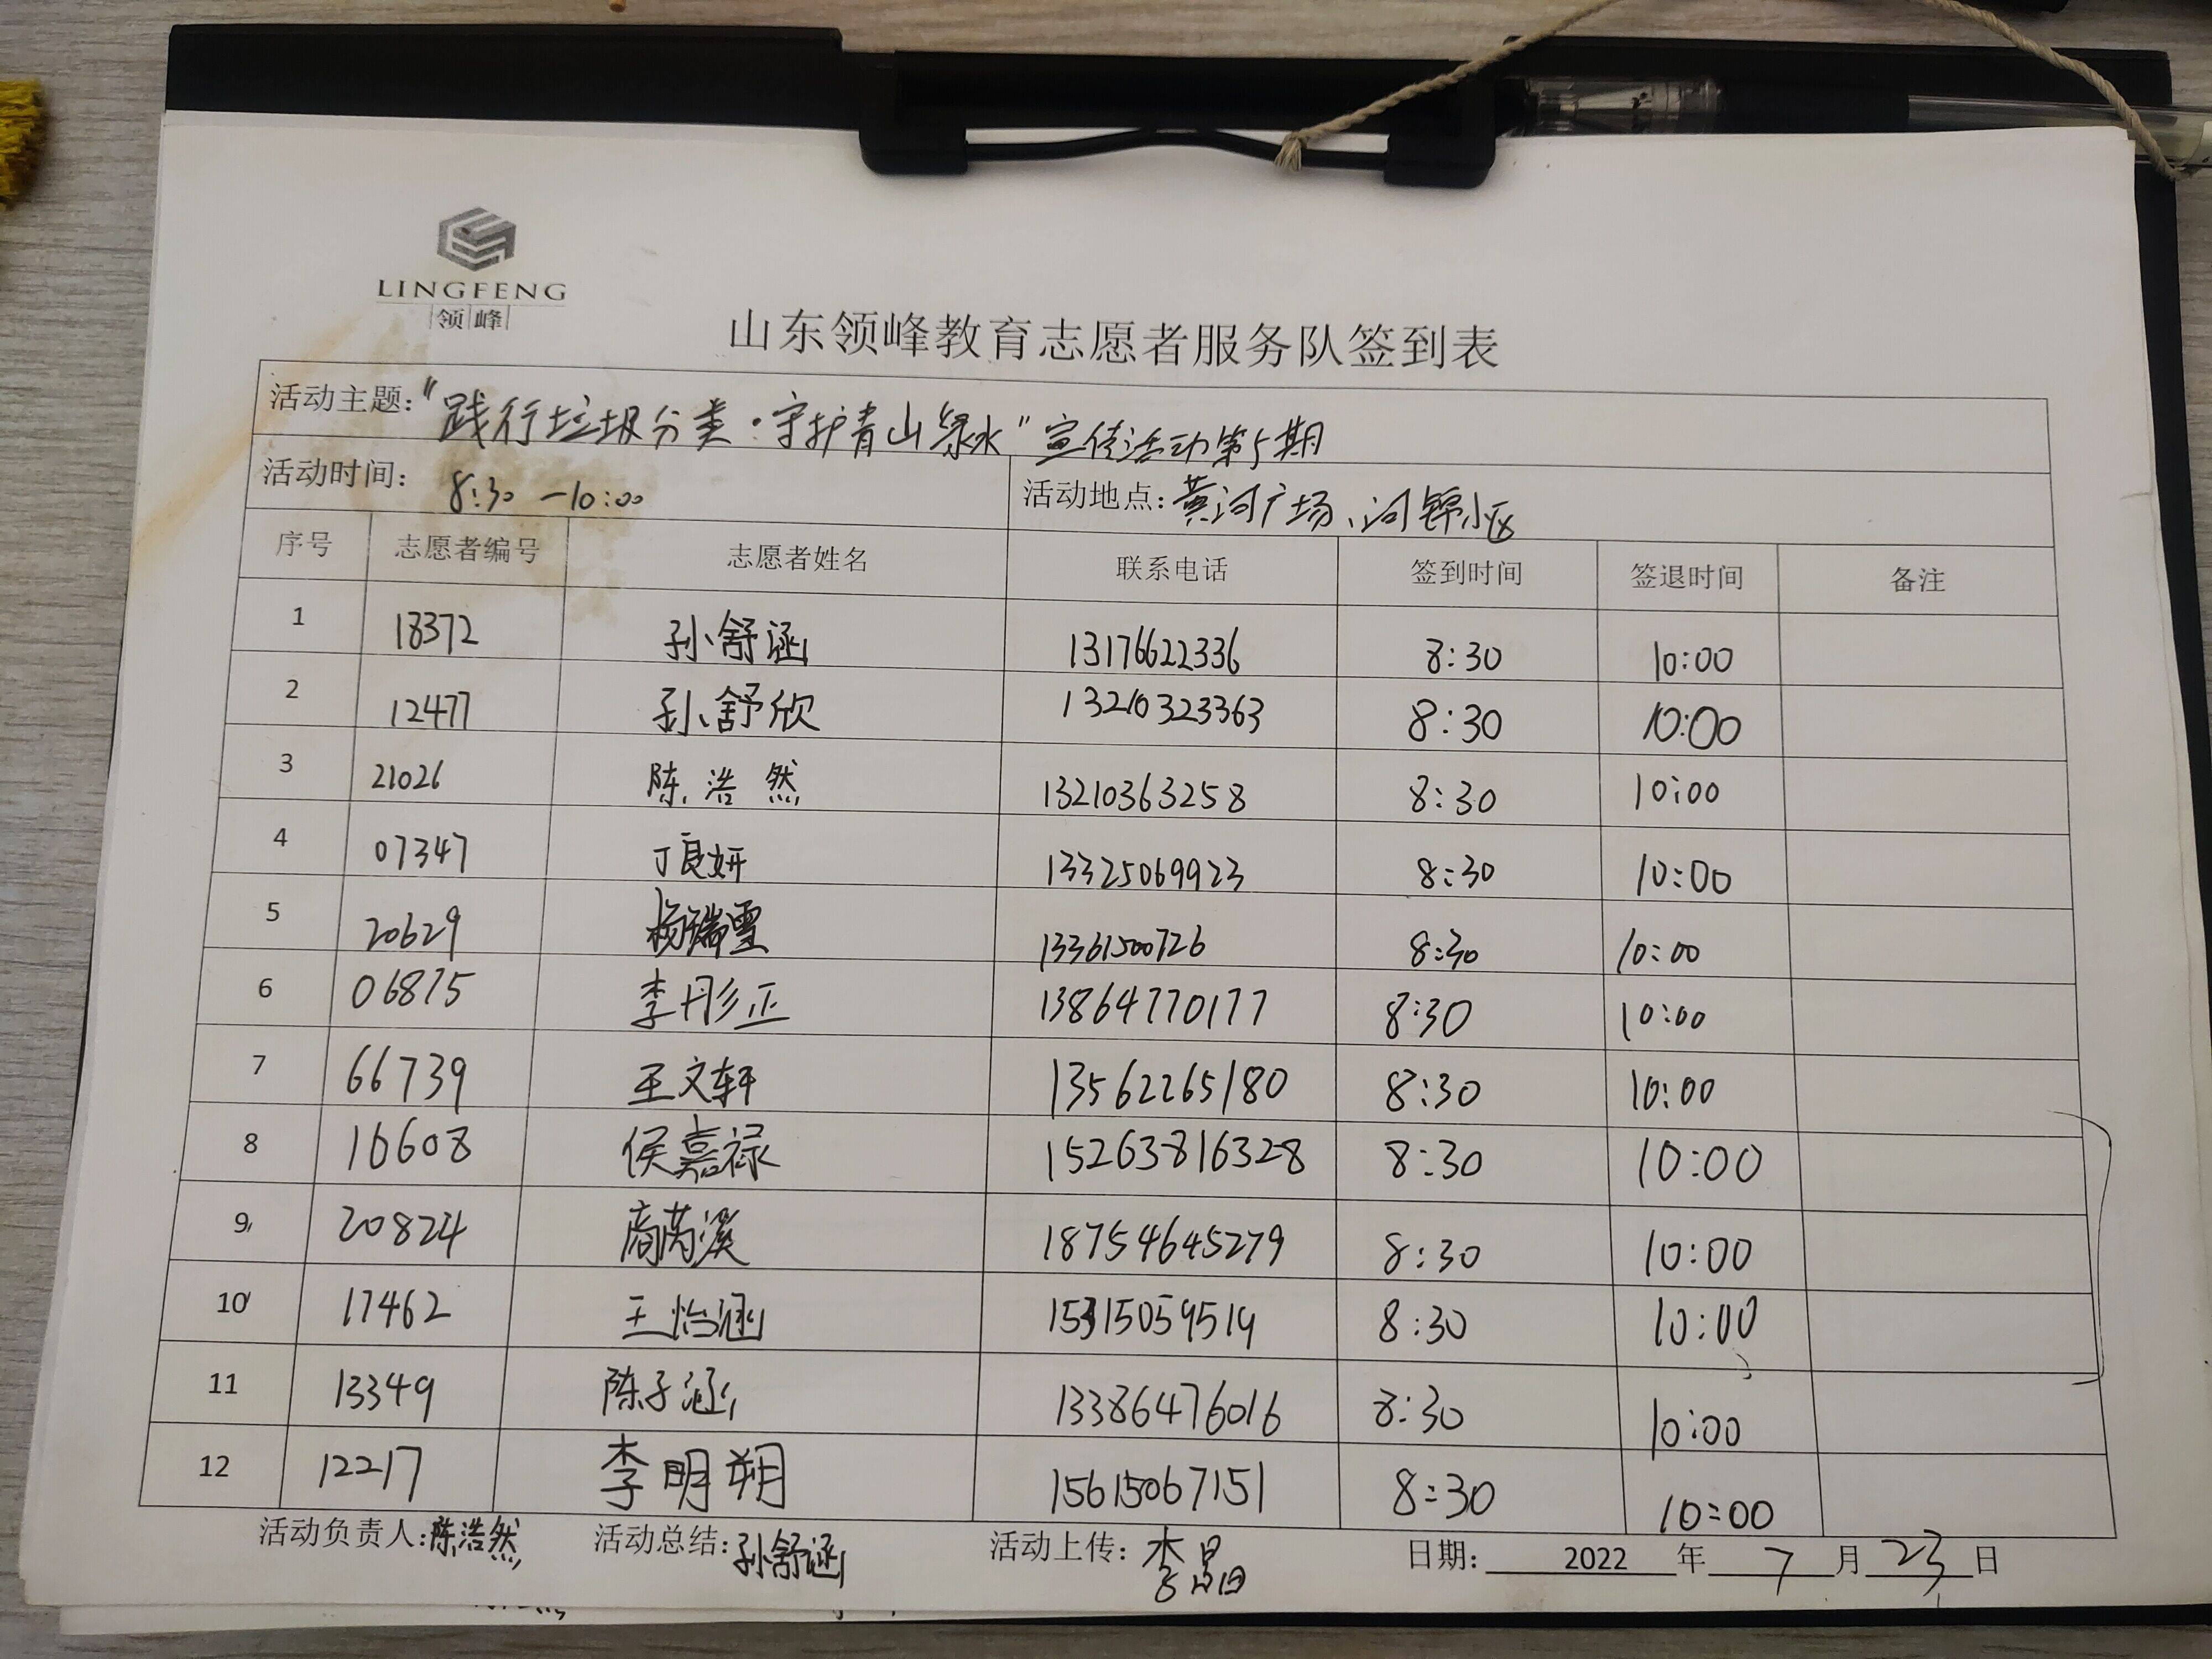 LINGFENG
领峰
山东领峰教育志愿者服务队签到表
活动主题:“践行垃圾分类·守护青山绿水”宣传活动第5期
活动时间: 8:30 —10:00 活动地点:黄河广场、河锦小区
序号 志愿者编号 志愿者姓名 联系电话 签到时间 签退时间 备注
1 18372 孙舒涵 13176622336 8:30 10:00
2 12477 孙舒欣 13210323363 8:30 10:00
3 21026 陈浩然 13210363258 8:30 10:00
4 07347 丁良妍 13325069923 8:30 10:00
5 20629 杨瑞雪 13361500726 8:30 10:00
6 06875 李彤正 13864770177 8:30 10:00
7 66739 王文轩 13562265180 8:30 10:00
8 16608 侯嘉禄 15263816328 8:30 10:00
9 20824 商芮溪 18754645279 8:30 10:00
10 17462 王怡涵 15315059519 8:30 10:00
11 13349 陈子涵 13386476016 8:30 10:00
12 12217 李明朔 15615067151 8:30 10:00
活动负责人:陈浩然 活动总结:孙舒涵 活动上传:李晶 日期: 2022 年 7 月 23 日